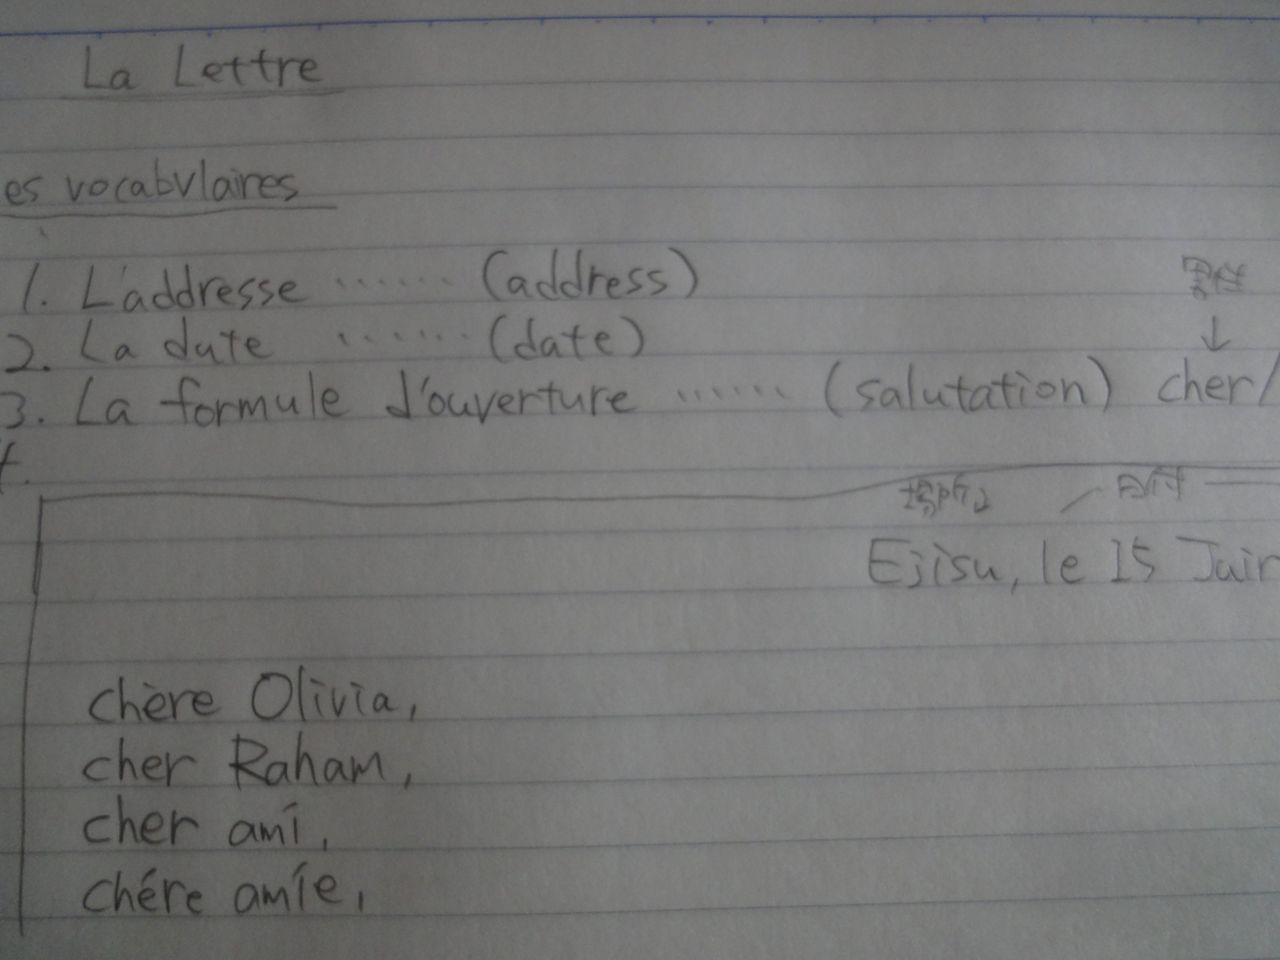 La Lettre
es vocabulaires
1. L'addresse ...... (address)
男性
↓
2. La date ...... (date)
3. La formule d'ouverture ...... (salutation) cher/
場所 / 日付
Ejisu, le 15 Juin
chère Olivia,
cher Raham,
cher ami,
chére amie,